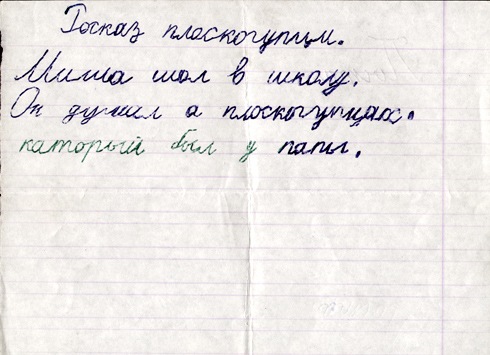 Госказ плоскогупцы.
Миша шол в школу.
Он думал а плоскогупцах.
каторый был у папы.